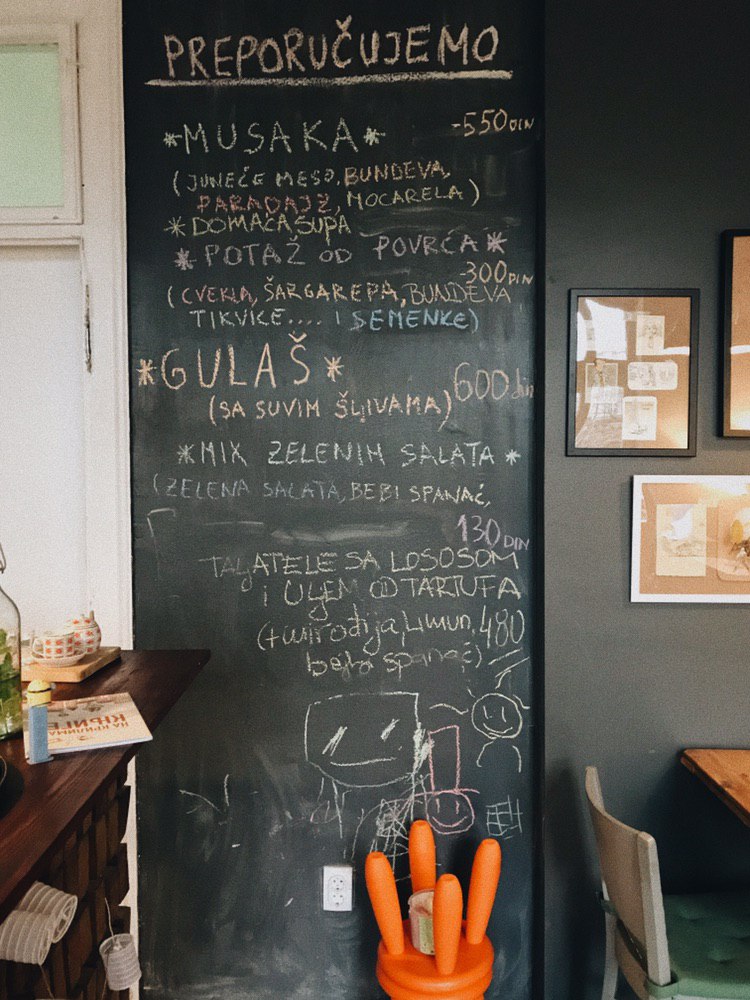 PREPORUČUJEMO
*MUSAKA* -550 DIN
(JUNEĆE MESO, BUNDEVA,
PARADAJZ, MOCARELA)
*DOMAĆA SUPA
*POTAŽ OD POVRĆA*
-300 DIN
(CVEKLA, ŠARGAREPA, BUNDEVA
TIKVICE.... I SEMENKE)
*GULAŠ* 600 din
(SA SUVIM ŠLJIVAMA)
*MIX ZELENIH SALATA*
(ZELENA SALATA, BEBI SPANAĆ,
130 DIN
TALJATELE SA LOSOSOM
i ULJEM OD TARTUFA
(+mirođija, Limun, 480
bejbi spanać)
НА КРИЛИМА
КЊИГЕ